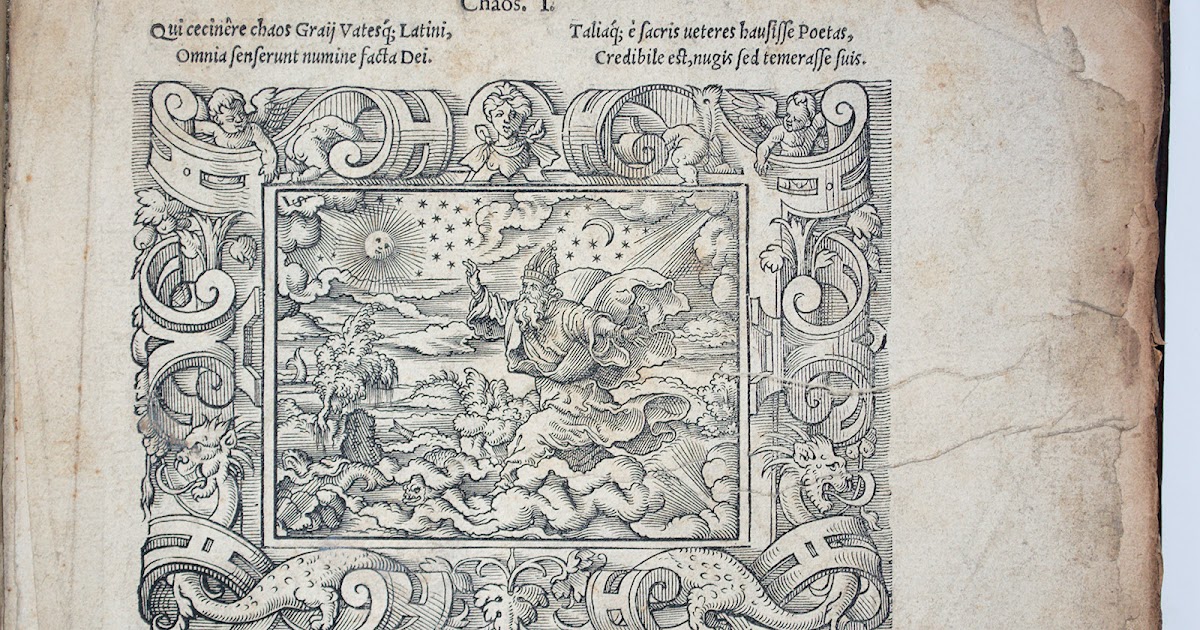 Chaos. I.
Qui cecinêre chaos Graij Vatesq́; Latini,
Omnia senserunt numine facta Dei.
Taliaq́; è sacris ueteres hausisse Poetas,
Credibile est, nugis sed temerasse suis.